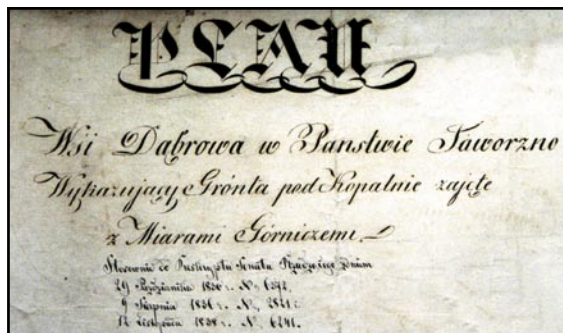 PLAN
Wsi Dąbrowa w Panstwie Jaworzno
Wykazujący Grónta pod Kopalnie zajęte
z Miarami Górniczemi
Stosownie do Reskryptu Senatu Rządzącego z dnia
29 Października 1836 r. No 6392.
9 Sierpnia 1836 r. No 2821
12 Listopada 1838 r. No 6241.